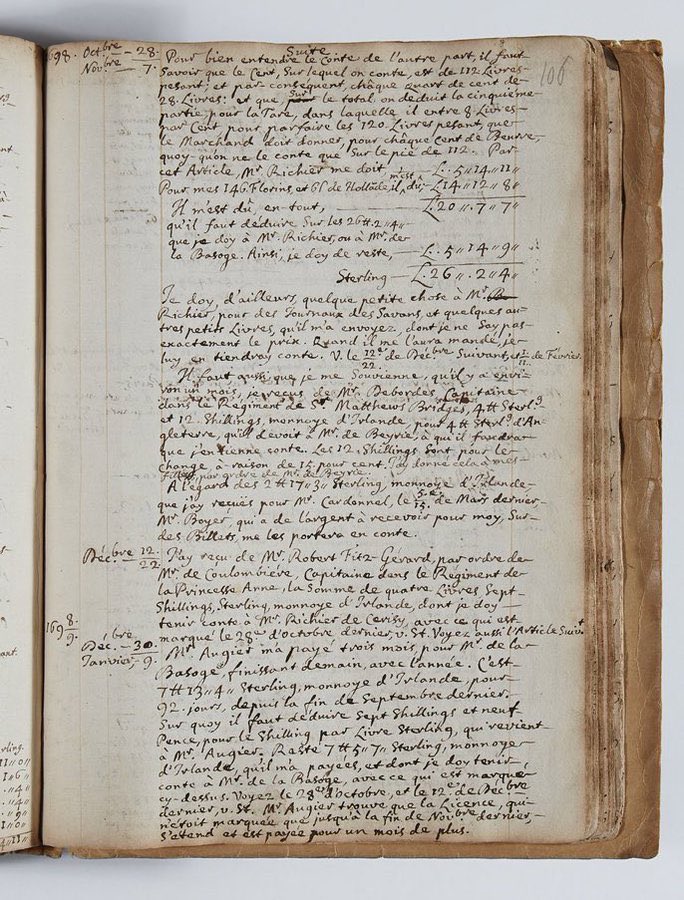 1698. Octbre – 28.
Novbre – 7.
106
Suite
Pour bien entendre le Conte de l'autre part, il faut
Savoir que le Cent, Sur lequel on conte, est de 112 Livres
pesant; et par consequent, châque quart de cent de
28. Livres: et que, Sur le total, on déduit la cinquième
partie, pour la Tare, dans laquelle il entre 8 Livres
par Cent, pour parfaire les 120. Livres pesant, que
le Marchand doit donner, pour châque Cent de Beurre,
quoy-qu'on ne le conte que Sur le pié de 112. Par
cet Article, Mr. Richier me doit, – L. 5 〃 14 〃 11 〃
Pour mes 146 Florins, et 6 s. de Hollãde, il m'est dû, L 14 〃 12 〃 8 〃
Il m'est dû, en-tout, – L. 20 〃 7 〃 7 〃
qu'il faut déduire Sur les 26 ₶ 2 〃 4 〃
que je doy à Mr. Richier, ou à Mr. de
la Basoge. Ainsi, je doy de reste, – L. 5 〃 14 〃 9 〃
Sterling – L. 26 〃 2 〃 4 〃
Je doy, d'ailleurs, quelque petite chose à Mr.
Richier, pour des Journaux des Savans, et quelques au-
tres petits Livres, qu'il m'a envoyez, dont je ne Say pas
exactement le prix. Quand il me l'aura mandé, je
luy en tiendray conte. V. le 12e/22. de Décbre Suivant, et 1/11. de Février.
Il faut, aussi, que je me Souvienne, qu'il y a envi-
ron un mois, je reçus de Mr. Debordes, Capitaine
dans le Régiment de Sr. Matthews Bridges, 4 ₶ Sterl.g
et 12. Shillings, monnoye d'Irlande, pour 4 ₶ Sterl.g d'An-
gleterre, qu'il devoit à Mr. de Beyrie, à qui il faudra
que j'en tienne conte. Les 12. Shillings Sont pour le
change, à raison de 15. pour cent. J'ay donné cela à mes
Filles, par ordre de Mr. de Beyrie.
A l'égard des 2 ₶ 17 〃 3 〃 Sterling, monnoye d'Irlande
que j'ay reçûës pour Mr. Cardonnel, le 5e/15. de Mars dernier,
Mr. Boyer, qui a de l'argent à recevoir pour moy, Sur
des Billets, me les portera en conte.
Décbre 12./22.
J'ay reçu de Mr. Robert Fitz-Gérard, par ordre de
Mr. de Coulombiére, Capitaine dans le Régiment de
la Princesse Anne, la Somme de quatre Livres Sept
Shillings, Sterling, monnoye d'Irlande, dont je doy
tenir conte à Mr. Richier de Cerisy, avec ce qui est
marqué le 28e d'Octobre dernier, v. St. Voyez aussi l'Article Suivt
1698./9.
Décbre – 30.
Janvier, – 9.
Mr. Augier m'a payé trois mois, pour Mr. de la
Basoge, finissant demain, avec l'année. C'est
7 ₶ 13 〃 4 〃 Sterling, monnoye d'Irlande, pour
92. jours, depuis la fin de Septembre dernier.
Sur quoy il faut déduire Sept Shillings et neuf
Pence, pour le Shilling par Livre Sterling, qui revient
à Mr. Augier. Reste 7 ₶ 5 〃 7 〃 Sterling, monnoye
d'Irlande, qu'il m'a payées, et dont je doy tenir
conte à Mr. de la Basoge, avec ce qui est marqué
cy-dessus. Voyez le 28e d'Octobre, et le 12e de Décbre
dernier, v. St. Mr. Augier trouve que la Licence, qui
n'étoit marquée que jusqu'à la fin de Novbre dernier,
s'étend et est payée pour un mois de plus.